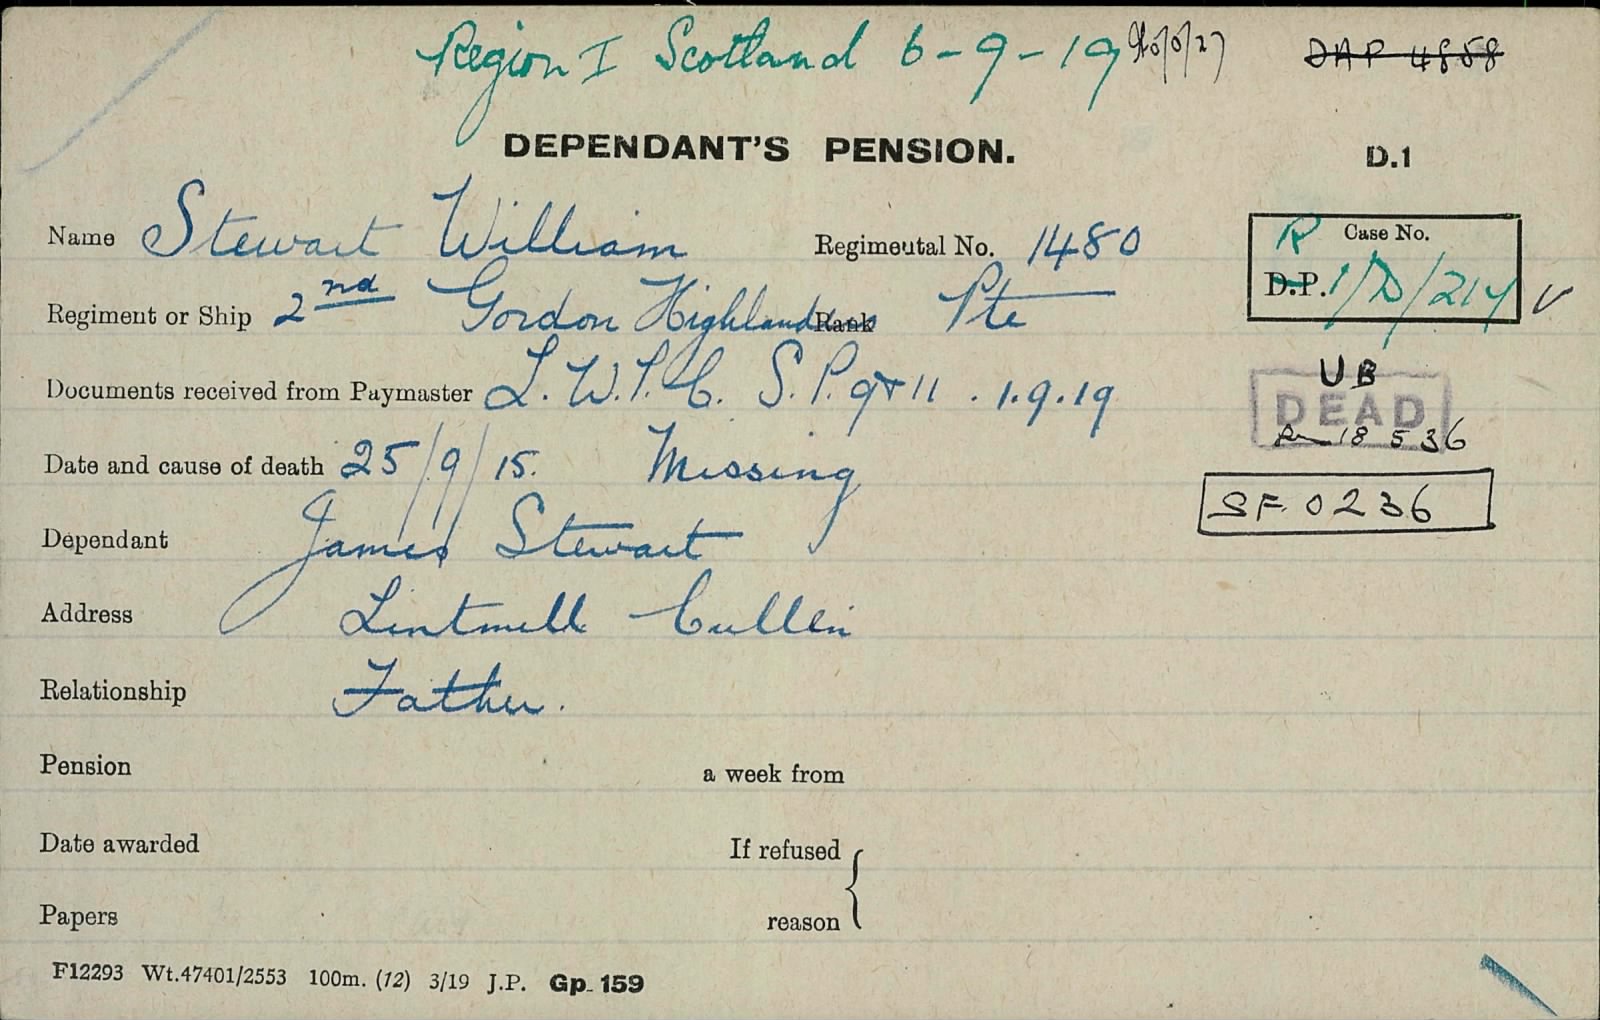 Region I Scotland 6-9-19
DAP 4858
DEPENDANT'S PENSION.
D.1
Name Stewart William Regimental No. 1480
R Case No.
D.P. 1/D/214
Regiment or Ship 2nd Gordon Highlanders Rank Pte
Documents received from Paymaster L.W.P.C. S.P. 9+11. 1.9.19
UB
DEAD
18 5 36
Date and cause of death 25/9/15. Missing
SF 0236
Dependant James Stewart
Address Lintmill Cullen
Relationship Father.
Pension a week from
Date awarded If refused
Papers reason
F12293 Wt.47401/2553 100m. (12) 3/19 J.P. Gp. 159